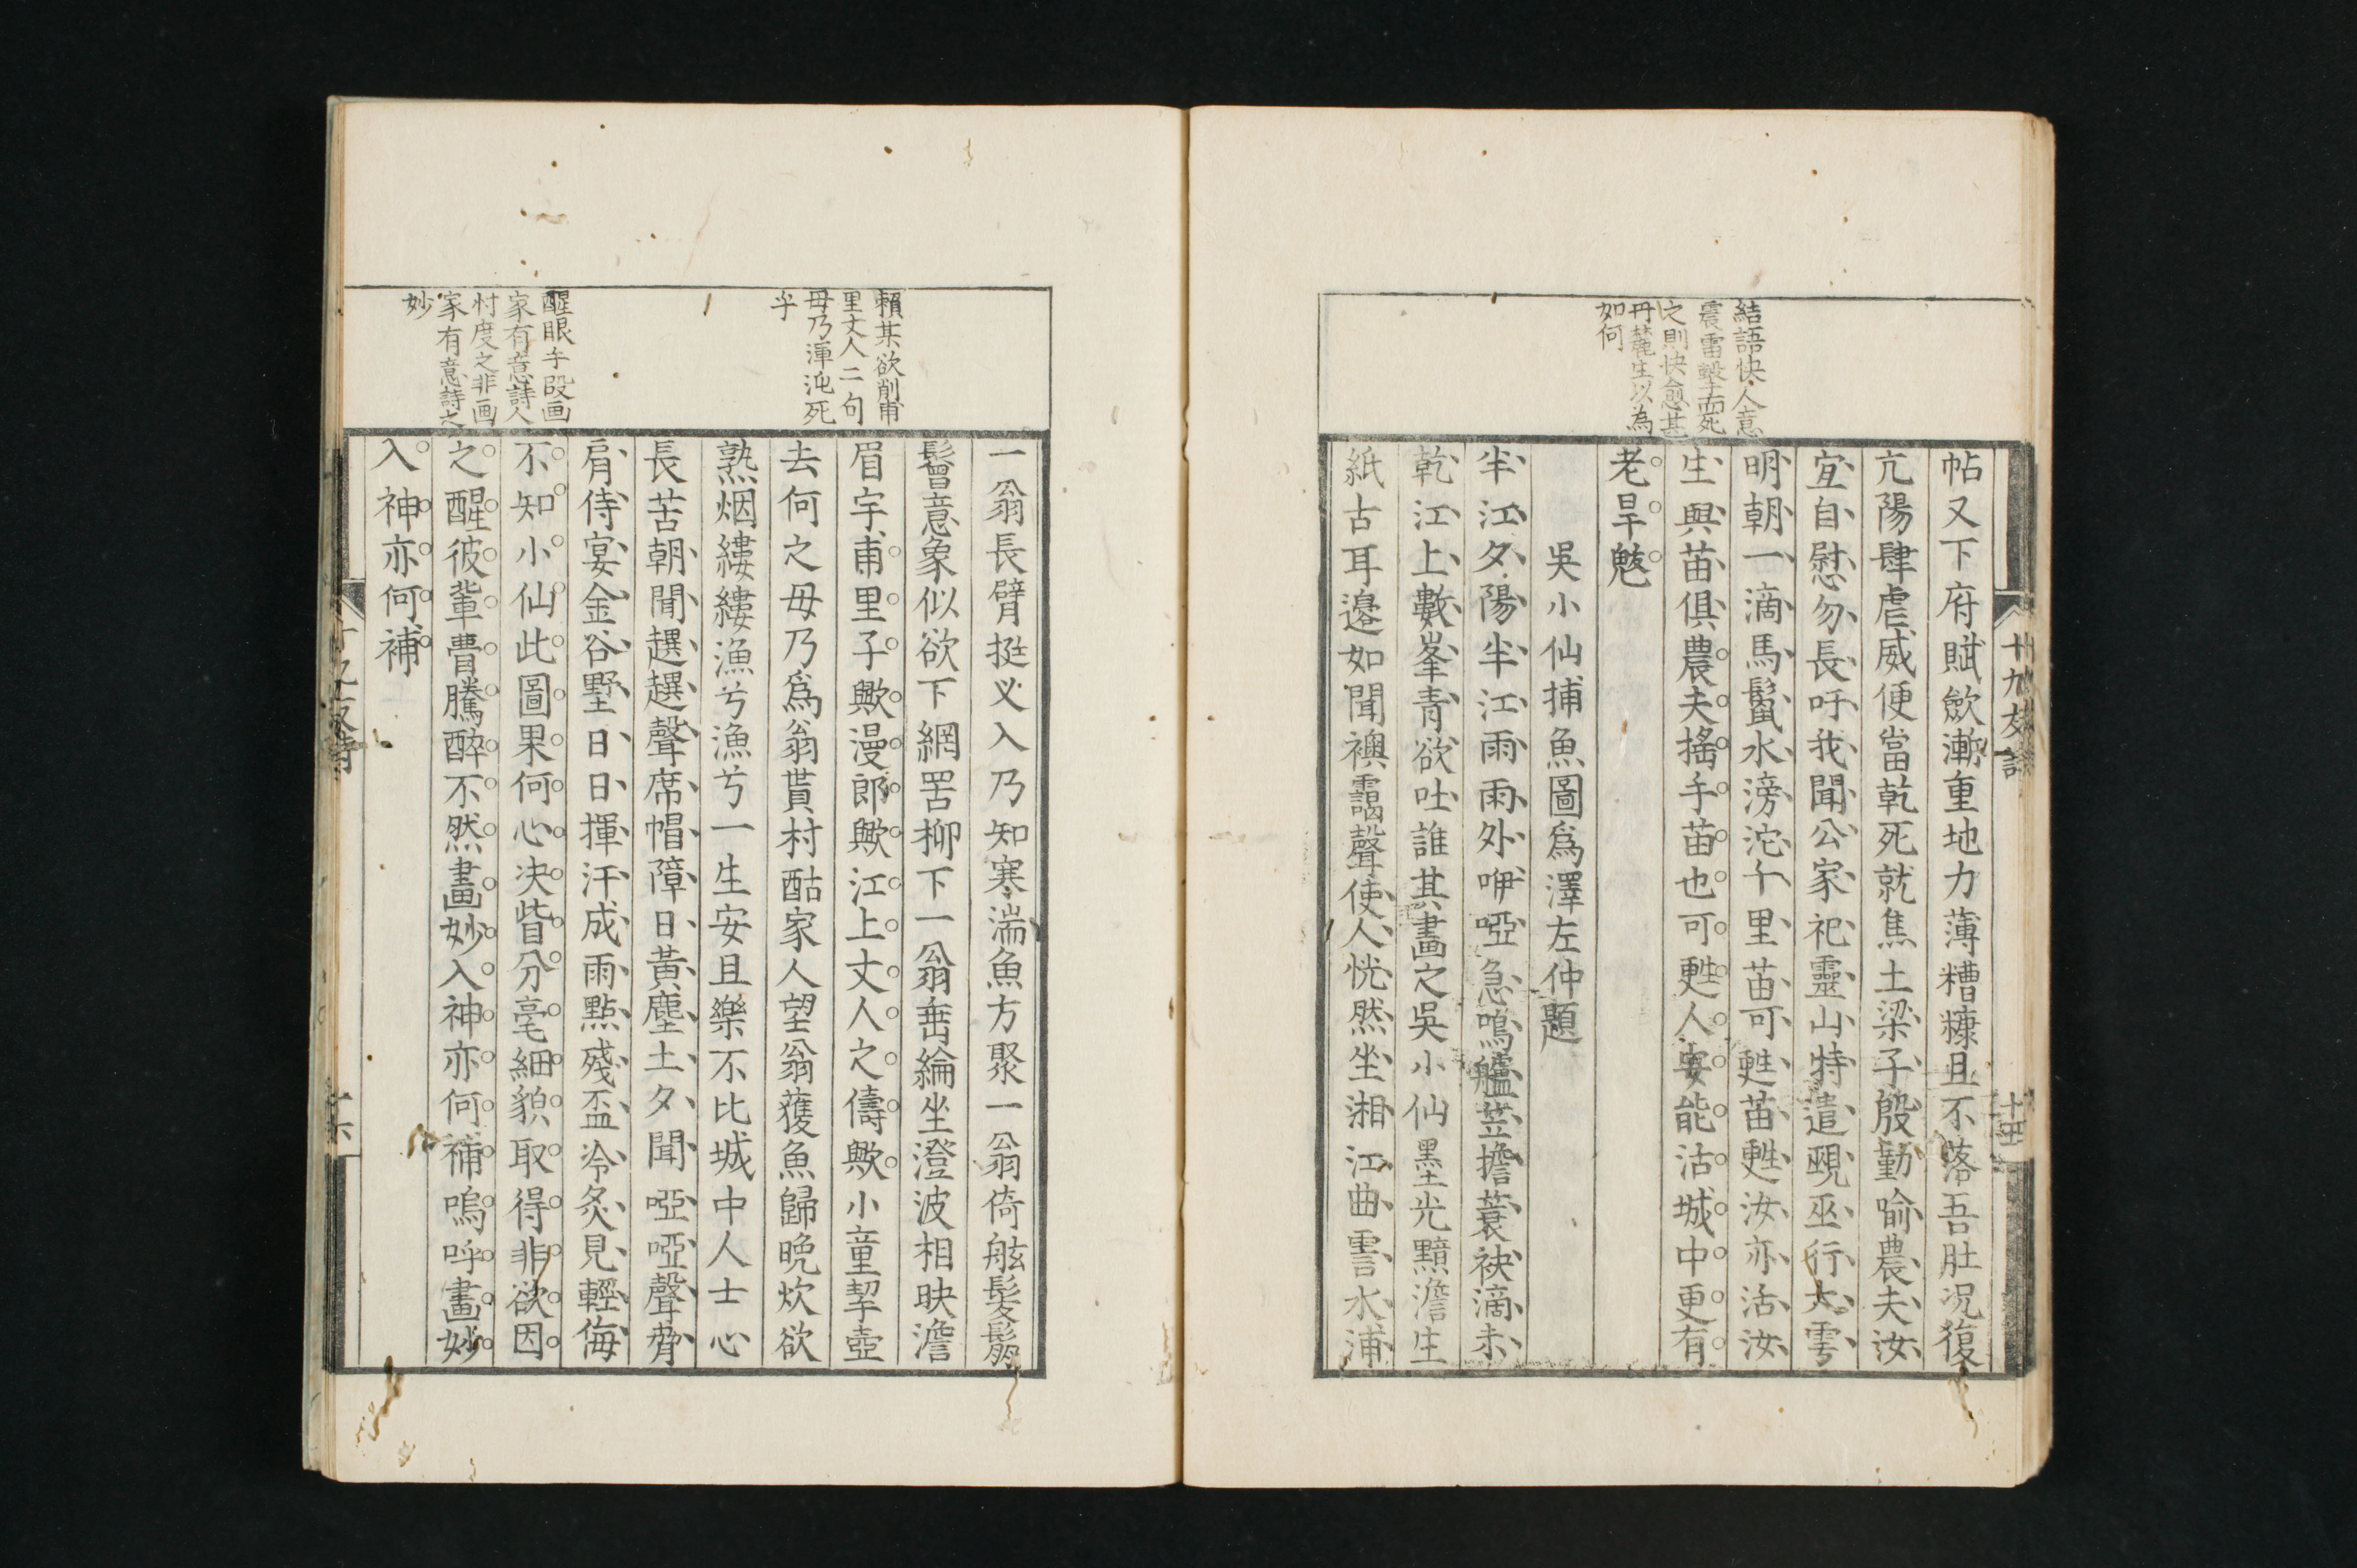 結語快人意
震雷毀而死
之則快愈甚
丹麓生以為
如何
帖又下府賦歛漸重地力薄糟糠且不落吾肚况復
亢陽肆虐威便當乾死就焦土梁子殷勤喻農夫汝
宜自慰勿長吁我聞公家祀靈山特遣覡巫行大雩
明朝一滴馬鬣水滂沱千里苗可甦苗甦汝亦活汝
生與苗俱農夫搖手苗也可甦人要能活城中更有
老旱魃
吳小仙捕魚圖爲澤左仲題
半江夕陽半江雨雨外咿啞急鳴艫笠擔蓑袂滴未
乾江上數峯青欲吐誰其畫之吳小仙墨光黯澹生
紙古耳邊如聞襖靄聲使人恍然坐湘江曲霅水浦
十九友詩
十五
賴某欲削甫
里丈人二句
毋乃渾沌死
乎
醒眼手段画
家有意詩人
忖度之非画
家有意詩之
妙
一翁長臂挺乂入乃知寒湍魚方聚一翁倚舷髮鬅
鬠意象似欲下網罟柳下一翁埀綸坐澄波相映澹
眉宇甫里子歟漫郎歟江上丈人之儔歟小童挈壺
去何之毋乃爲翁貰村酤家人望翁獲魚歸晩炊欲
熟烟縷縷漁兮漁兮一生安且樂不比城中人士心
長苦朝聞趩趩聲席帽障日黃塵土夕聞啞啞聲脅
肩侍宴金谷墅日日揮汗成雨點殘盃冷炙見輕侮
不知小仙此圖果何心决眥分毫細貌取得非欲因
之醒彼輩瞢騰醉不然畫妙入神亦何補嗚呼畫妙
入神亦何補